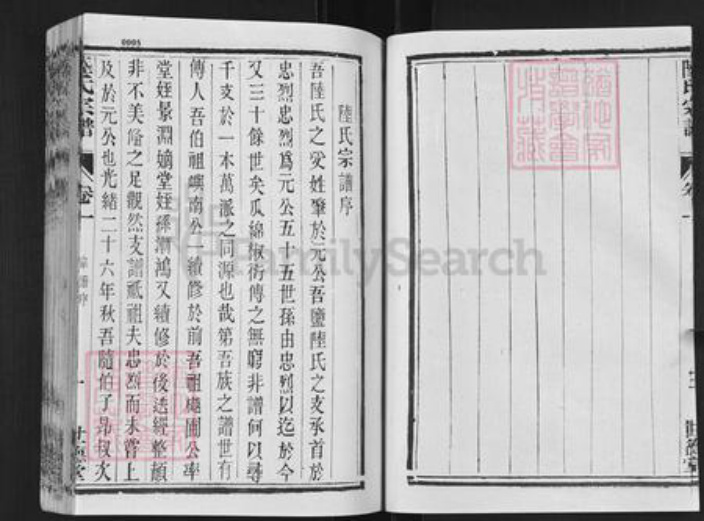 0005
陸氏宗譜序
吾陸氏之受姓肇於元公吾鹽陸氏之支承首於
忠烈忠烈爲元公五十五世孫由忠烈以迄於今
又三十餘世矣瓜綿椒衍傳之無窮非譜何以尋
千支於一本萬派之同源也哉第吾族之譜世有
傳人吾伯祖嶼南公一續修於前吾祖 圃公率
堂姪景淵嫡堂姪孫 鴻又續修於後迭經整頓
非不美備之足觀然支譜祗祖夫忠烈而未嘗上
及於元公也光緒二十六年秋吾隨伯子昂叔次
陸氏宗譜
卷一
序
一
世德堂
陸氏宗譜
卷一
三
世德堂
FamilySearch